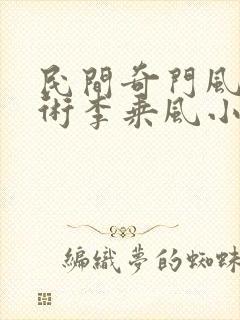 民間奇門風
術李乘風小
編織夢的蜘蛛